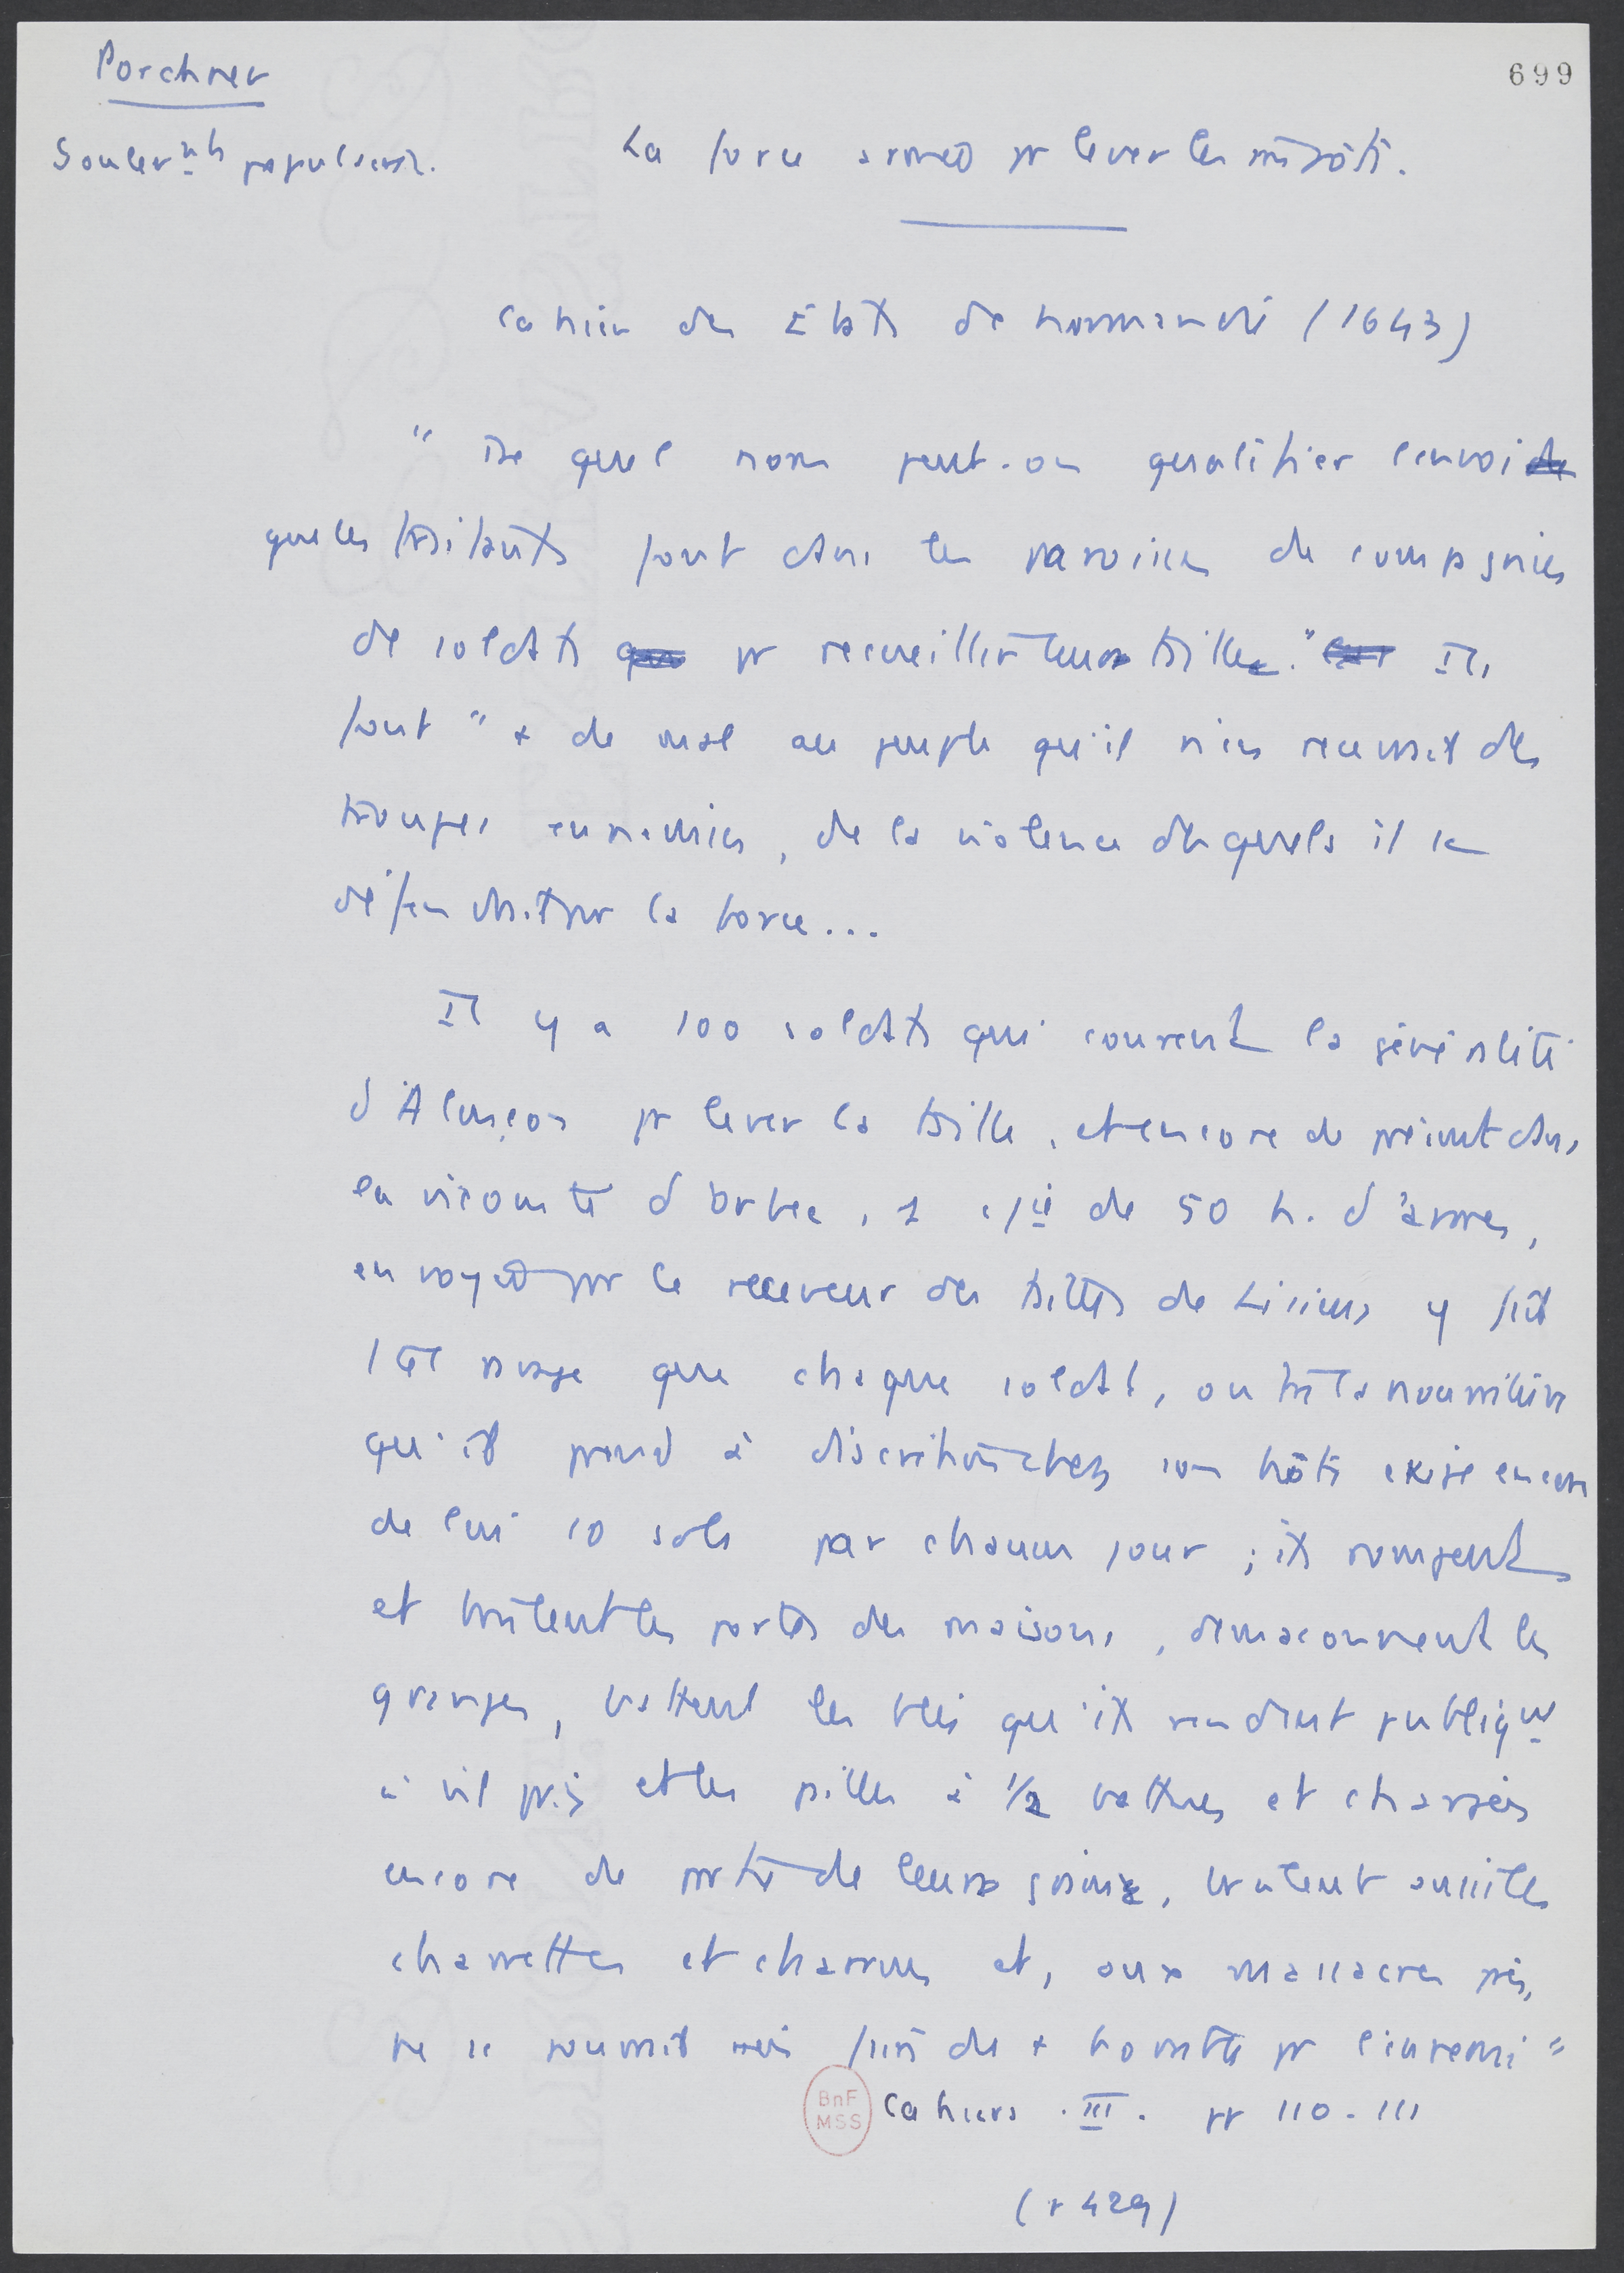 Porchnev
699
Soulev<sup>nts</sup> populaires.
La force armée pr lever les impôts.
Cahier des Etats de Normandie (1643)
" De quel nom peut-on qualifier l'envoi
que les traitants font dans les paroisses de compagnies
de soldats pr recueillir leurs tailles." Ils
font " + de mal au peuple qu'il n'en recevrait des
troupes ennemies, de la violence desquels il se
défendrait par la force...
Il y a 100 soldats qui courent la généralité
d'Alençon pr lever la taille, et encore de présent dans
la vicomté d'Orbec, 1 cie de 50 h. d'armes,
envoyée par le receveur des tailles de Lisieux y fait
1 tel ravage que chaque soldat, outre la nourriture
qu'il prend à discrétion chez son hôte exige encore
de lui 10 sols par chacun jour ; ils rompent
et brûlent les portes des maisons, démaçonnent les
granges, battent les blés qu'ils vendent publiqut
à vil prix et les pailles à 1/2 battues et chargées
encore de partie de leurs grains, brûlent aussi les
charrettes et charrues et, aux massacres près,
ne se pourrait faire de + hostile pr l'ennemi "
BnF
MSS
Cahiers . III . pp 110-111
(p 429)